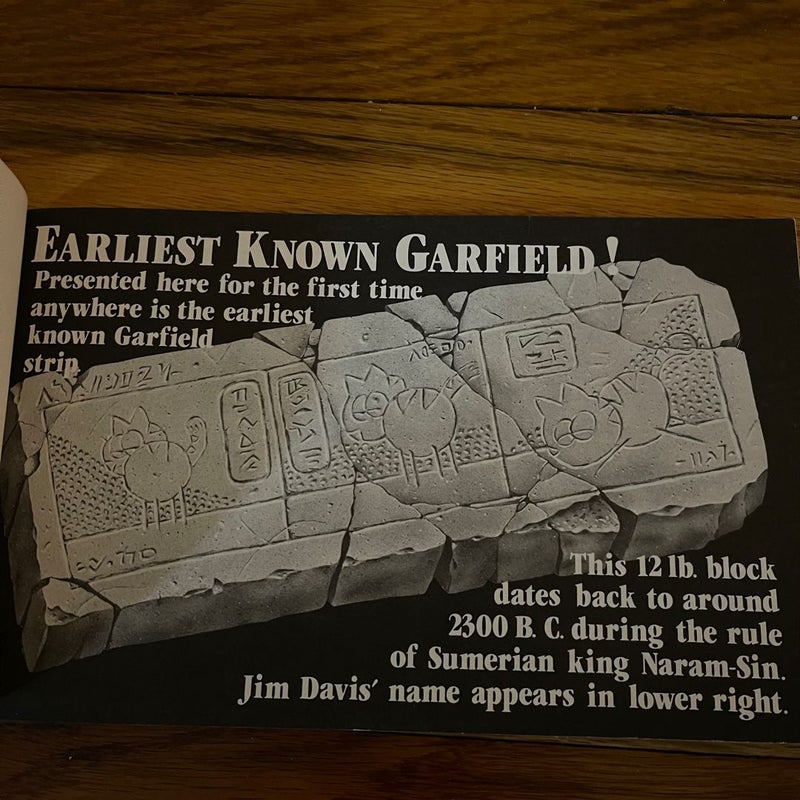 EARLIEST KNOWN GARFIELD!
Presented here for the first time
anywhere is the earliest
known Garfield
strip.
This 12 lb. block
dates back to around
2300 B. C. during the rule
of Sumerian king Naram-Sin.
Jim Davis' name appears in lower right.